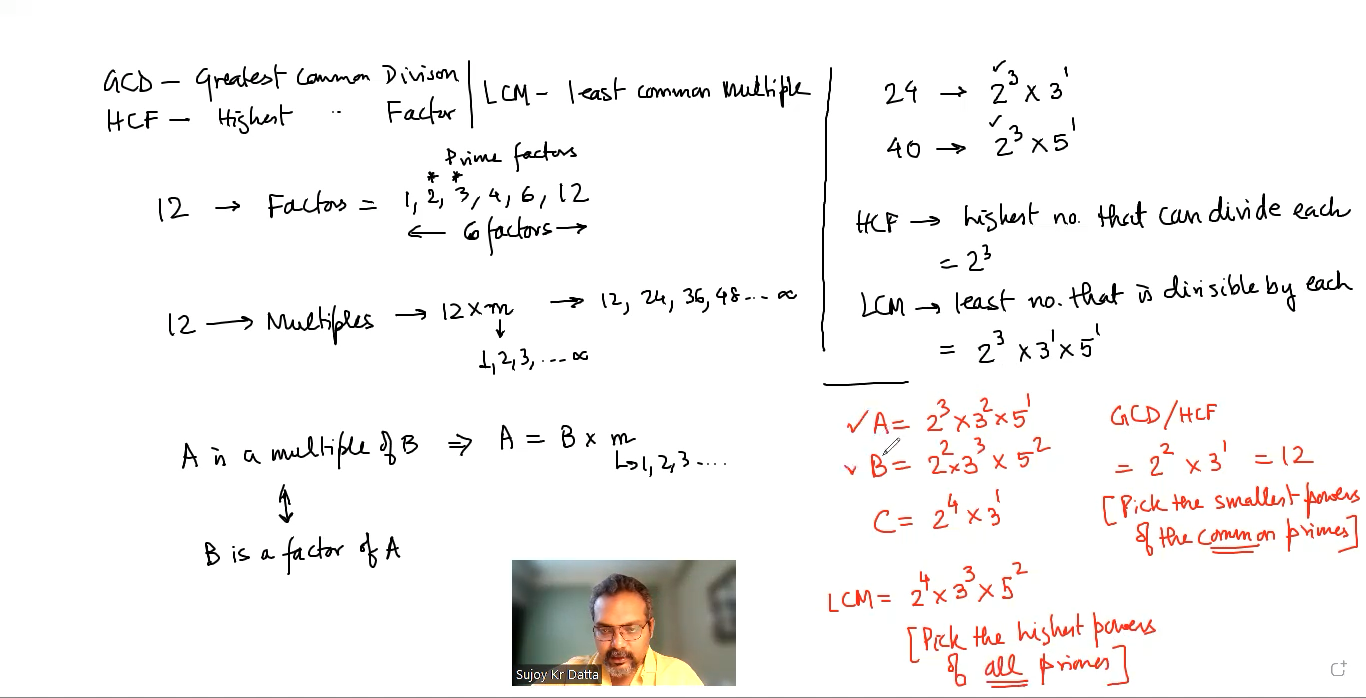 GCD – Greatest Common Divison
HCF – Highest " Factor
LCM – least common multiple
Prime factors
* *
12 → Factors = 1, 2, 3, 4, 6, 12
← 6 factors →
12 → Multiples → 12 × m → 12, 24, 36, 48 ... ∞
↓
1, 2, 3, ... ∞
A is a multiple of B ⇒ A = B × m
↳ 1, 2, 3 ....
↕
B is a factor of A
24 → 2³ × 3¹
40 → 2³ × 5¹
HCF → highest no. that can divide each
= 2³
LCM → least no. that is divisible by each
= 2³ × 3¹ × 5¹
✓ A = 2³ × 3² × 5¹
✓ B = 2² × 3³ × 5²
C = 2⁴ × 3¹
GCD/HCF
= 2² × 3¹ = 12
[Pick the smallest powers
of the common primes]
LCM = 2⁴ × 3³ × 5²
[Pick the highest powers
of all primes]
Sujoy Kr Datta